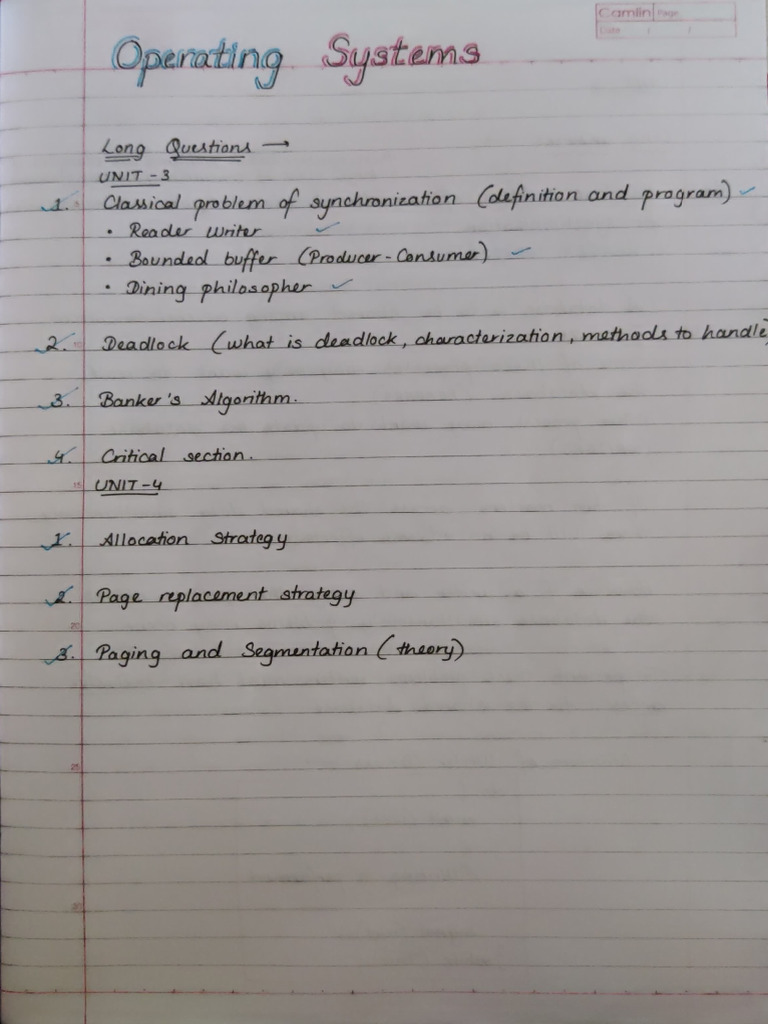 Camlin Page
Date / /
Operating Systems
Long Questions →
UNIT - 3
1. Classical problem of synchronization (definition and program) ✓
• Reader Writer ✓
• Bounded buffer (Producer - Consumer) ✓
• Dining philosopher ✓
2. Deadlock (what is deadlock, characterization, methods to handle)
3. Banker's Algorithm.
4. Critical section.
15
UNIT - 4
1. Allocation Strategy
2. Page replacement strategy
20
3. Paging and Segmentation (theory)
25
30